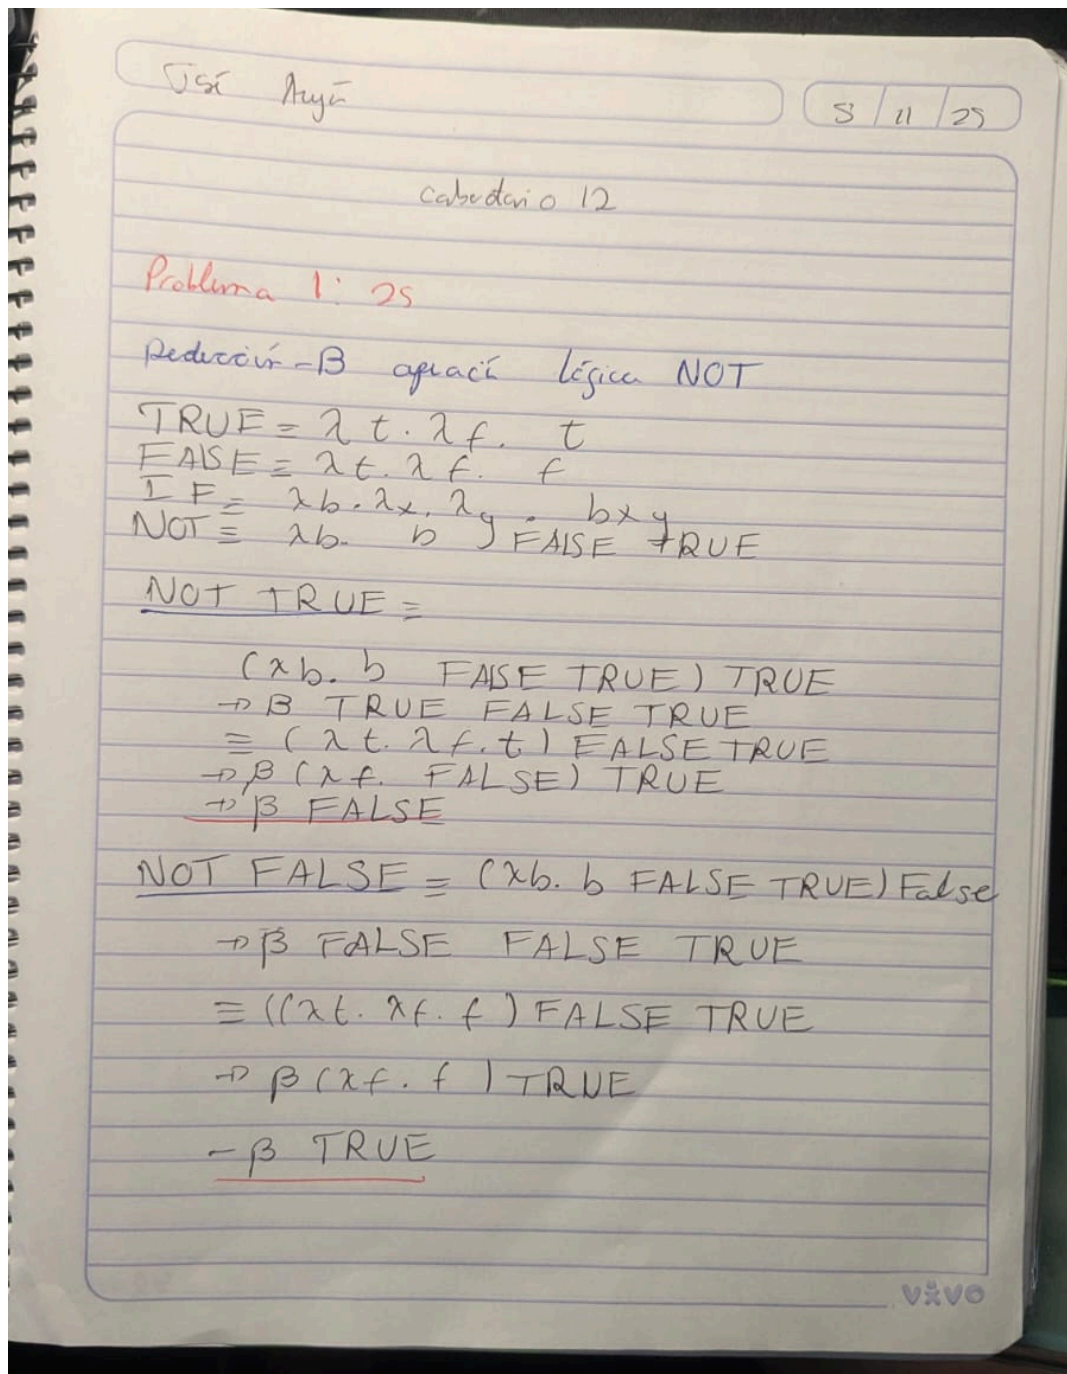 José
5/11/25
Laboratorio 12
Problema 1: 25
Reducción-β operación lógica NOT
TRUE = λt. λf. t
FALSE = λt. λf. f
IF = λb. λx. λy. bxy
NOT ≡ λb. b FALSE TRUE
NOT TRUE =
(λb. b FALSE TRUE) TRUE
→β TRUE FALSE TRUE
≡ (λt. λf. t) FALSE TRUE
→β (λf. FALSE) TRUE
→β FALSE
NOT FALSE = (λb. b FALSE TRUE) False
→β FALSE FALSE TRUE
≡ ((λt. λf. f) FALSE TRUE
→β (λf. f) TRUE
-β TRUE
vivo